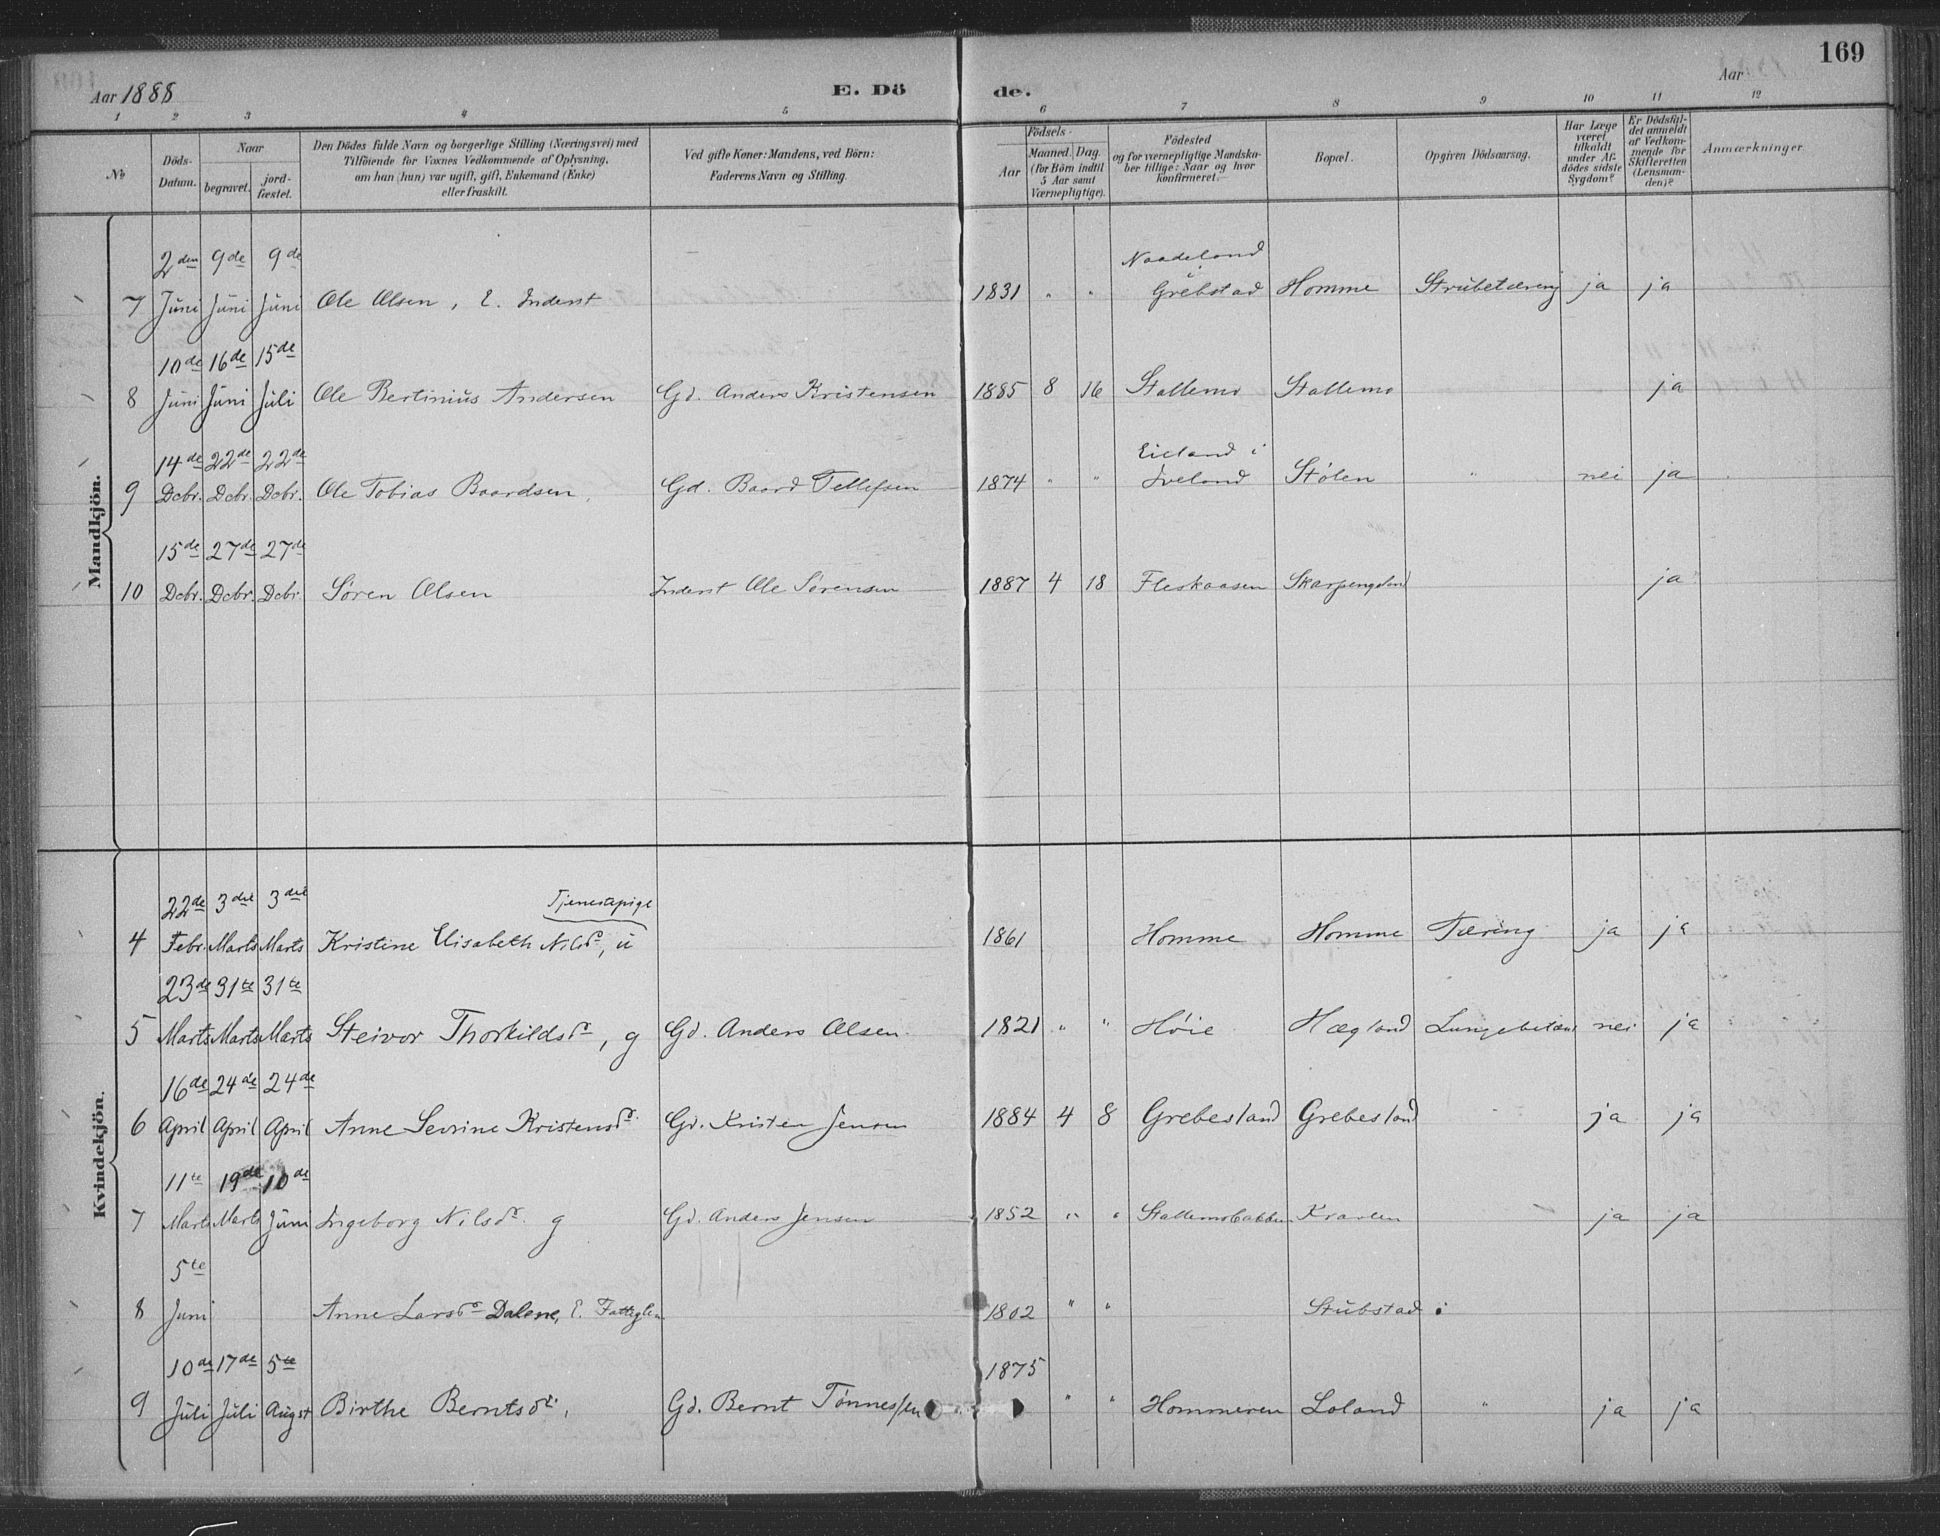 169
Aar 1888
E. Dö
de.
Aar
1 2 3 4 5 6 7 8 9 10 11 12
No
Döds-Datum.
Naar
begravet.
jordfæstet.
Den Dödes fulde Navn og borgerlige Stilling (Næringsvei) med
Tilföiende for Voxnes Vedkommende af Oplysning,
om han (hun) var ugift, gift, Enkemand (Enke)
eller fraskilt.
Ved gifte Koner: Mandens, ved Börn:
Faderens Navn og Stilling.
Födsels-
Aar
Maaned. Dag.
(for Börn indtil
5 Aar samt
Værnepligtige).
Födested
og for værnepligtige Mandskaber tillige: Naar og hvor
konfirmeret.
Bopæl.
Opgiven Dödsaarsag.
Har Læge
været
tilkaldt
under Afdödes sidste
Sygdom?
Er Dödsfaldet anmeldt
af Vedkommende for
Skifteretten
(Lensmanden)?
Anmærkninger
Mandkjön.
2den 9de 9de Naadeland i
7 Juni Juni Juni Ole Olsen, E. Inderst 1831 " " Grebstad Homme Strubetæring ja ja
10de 16de 15de
8 Juni Juni Juli Ole Bertinius Andersen Gd. Anders Kristensen 1885 8 16 Stallemo Stallemo ja
14de 22de 22de Eieland i
9 Dcbr. Dcbr. Dcbr. Ole Tobias Baardsen, Gd. Baard Tellefsen 1874 " " Iveland Stølen " nei ja
15de 27de 27de
10 Dcbr. Dcbr. Dcbr. Søren Olsen Inderst Ole Sørensen 1887 4 18 Fleskaasen Skarpengland ja
Kvindekjön.
22de 3die 3die Tjenestepige
4 Febr. Marts Marts Kristine Elisabeth Nilsdr, u 1861 Homme Homme Tæring ja ja
23de 31te 31te
5 Marts Marts Marts Steivor Thorkildsdr, g Gd. Anders Olsen 1821 " " Høie Hægland nei ja
16de 24de 24de
6 April April April Anne Sevrine Kristensdr. Gd. Kristen Jensen 1884 4 8 Grebesland Grebesland ja ja
11te 19de 10de
7 Marts Marts Juni Ingeborg Nilsdr. g Gd. Anders Jensen 1852 " " ja ja
5te
8 Juni Anne Larsdr Dalene, E. 1802 " " Stubstad
10de 17de 5te 1875
9 Juli Juli Augst Birthe Berntsdr, Gd. Bernt Tønnessen " " Hommeren Loland " ja ja